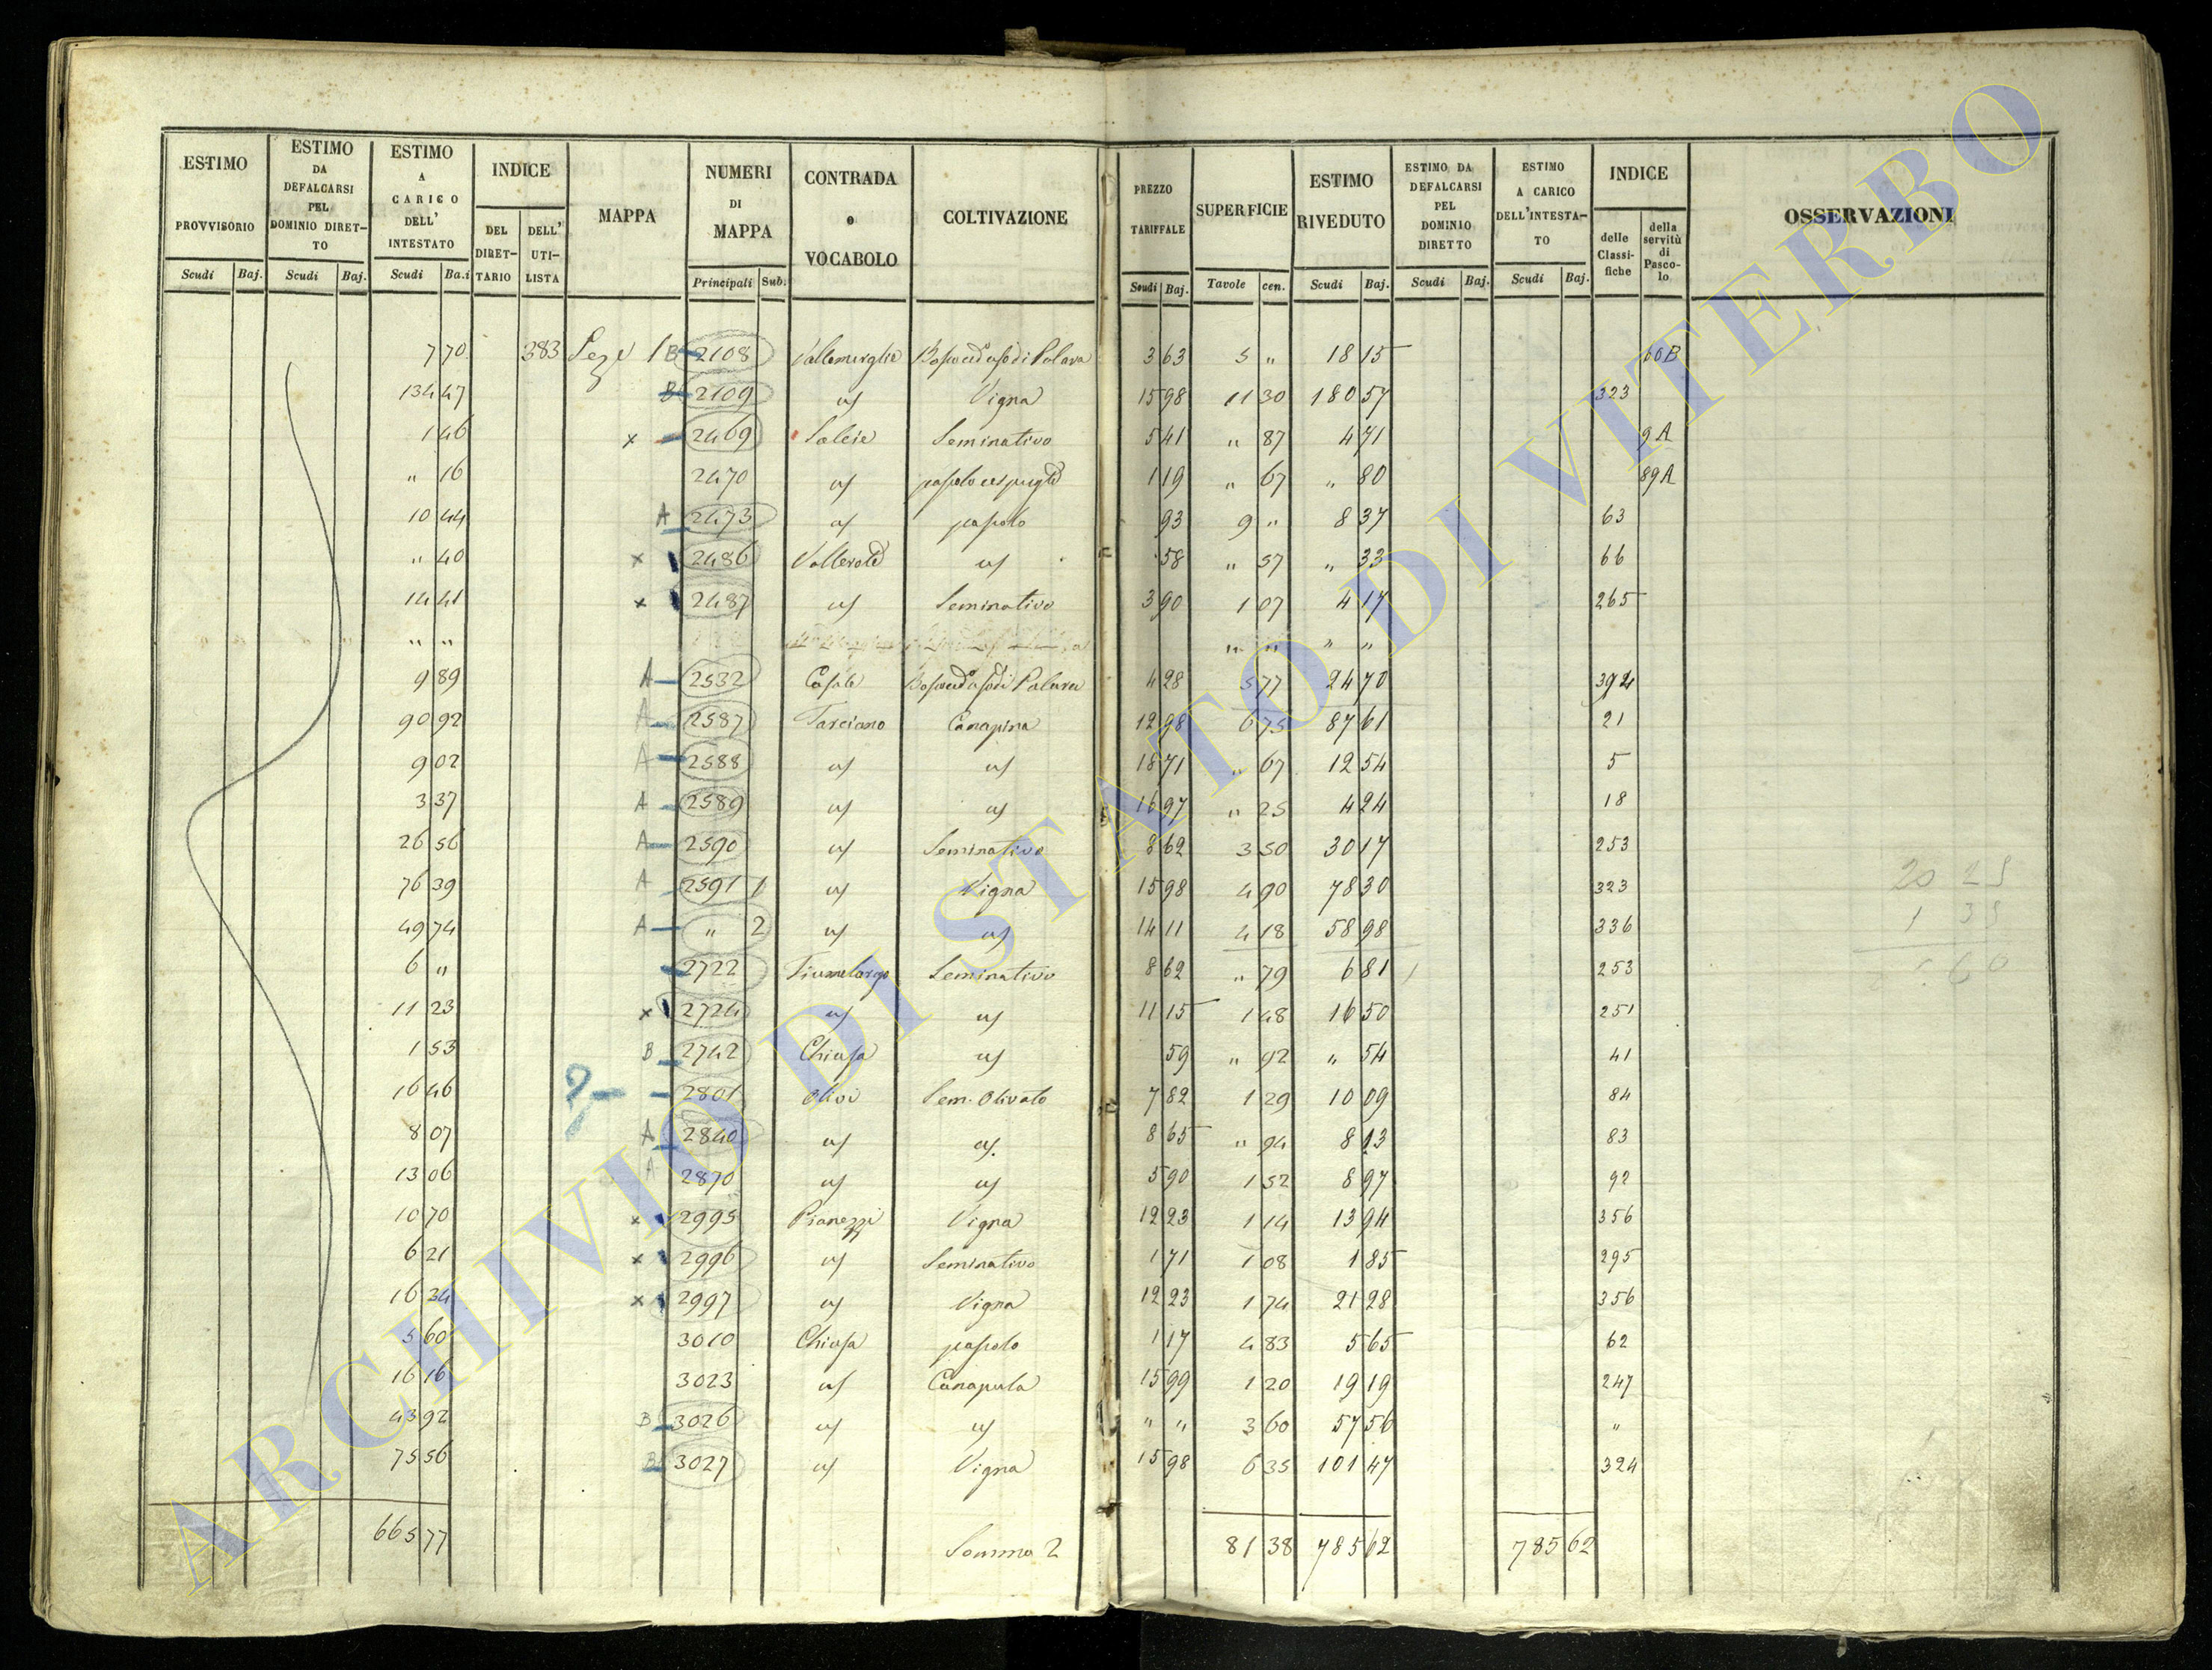 ESTIMO PROVVISORIO Scudi Baj.
ESTIMO DA DEFALCARSI PEL DOMINIO DIRETTO Scudi Baj.
ESTIMO A CARICO DELL' INTESTATO Scudi Ba.i
INDICE DEL DIRETTARIO DELL' UTILISTA
MAPPA
NUMERI DI MAPPA Principali Sub.
CONTRADA o VOCABOLO
COLTIVAZIONE
PREZZO TARIFFALE Scudi Baj.
SUPERFICIE Tavole cen.
ESTIMO RIVEDUTO Scudi Baj.
ESTIMO DA DEFALCARSI PEL DOMINIO DIRETTO Scudi Baj.
ESTIMO A CARICO DELL'INTESTATO Scudi Baj.
INDICE delle Classifiche della servitù di Pascolo
OSSERVAZIONI
7 70 383 1 B 2108 3 63 5 " 18 15 60B
134 47 B 2109 Vigna 15 98 11 30 180 57 323
1 46 x 2469 Salcie Seminativo 5 41 " 87 4 71 9A
" 16 2470 1 19 " 67 " 80 89A
10 44 A 2473 pascolo 93 9 " 8 37 63
" 40 x 2486 58 " 57 " 33 66
14 41 x 2487 Seminativo 3 90 1 07 4 17 265
" " " " " "
9 89 A 2532 Casale 4 28 5 77 24 70 394
90 92 A 2587 Tarciano Canapina 12 98 6 75 87 61 21
9 02 A 2588 18 71 " 67 12 54 5
3 37 A 2589 16 97 " 25 4 24 18
26 56 A 2590 Seminativo 8 62 3 50 30 17 253
76 39 A 2591 1 Vigna 15 98 4 90 78 30 323
49 74 A " 2 14 11 4 18 58 98 336
6 " 2722 Fiumelargo Seminativo 8 62 " 79 6 81 253
11 23 x 2724 11 15 1 48 16 50 251
1 53 B 2742 Chiusa 59 " 92 " 54 41
16 46 ? 2801 Olivi Sem. Olivato 7 82 1 29 10 09 84
8 07 A 2840 8 65 " 94 8 13 83
13 06 A 2870 5 90 1 52 8 97 92
10 70 x 2995 Pianezzi Vigna 12 23 1 14 13 94 356
6 21 x 2996 Seminativo 1 71 1 08 1 85 295
16 34 x 2997 Vigna 12 23 1 74 21 28 356
5 60 3010 Chiusa pascolo 1 17 4 83 5 65 62
16 16 3023 15 99 1 20 19 19 247
43 92 B 3026 " " 3 60 57 56 "
75 56 B 3027 Vigna 15 98 6 35 101 47 324
665 77 Somma 2 81 38 785 62 785 62
ARCHIVIO DI STATO DI VITERBO